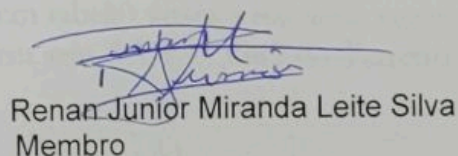 Renan Junior Miranda Leite Silva
Membro